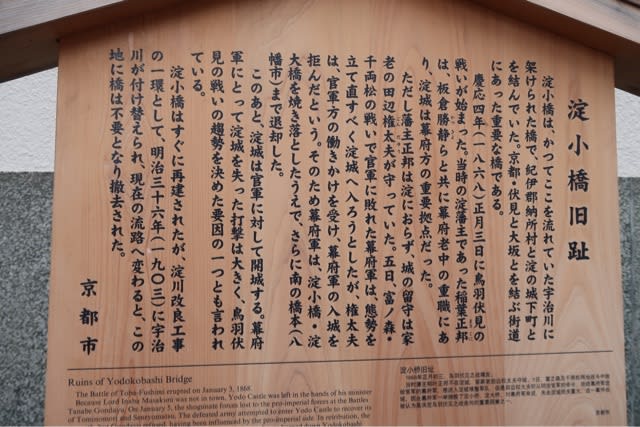 淀小橋旧趾
淀小橋は、かつてここを流れていた宇治川に
架けられた橋で、紀伊郡納所村と淀の城下町と
を結んでいた。京都・伏見と大坂とを結ぶ街道
にあった重要な橋である。
慶応四年(一八六八)正月三日に鳥羽伏見の
戦いが始まった。当時の淀藩主であった稲葉正邦
は、板倉勝静らと共に幕府老中の重職にあ
り、淀城は幕府方の重要拠点だった。
ただし藩主正邦は淀におらず、城の留守は家
老の田辺権太夫が守っていた。五日、富ノ森・
千両松の戦いで官軍に敗れた幕府軍は、態勢を
立て直すべく淀城へ入ろうとしたが、権太夫
は、官軍方の働きかけを受け、幕府軍の入城を
拒んだという。そのため幕府軍は、淀小橋・淀
大橋を焼き落としたうえで、さらに南の橋本(八
幡市)まで退却した。
このあと、淀城は官軍に対して開城する。幕府
軍にとって淀城を失った打撃は大きく、鳥羽伏
見の戦いの趨勢を決めた要因の一つとも言われ
ている。
淀小橋はすぐに再建されたが、淀川改良工事
の一環として、明治三十六年(一九〇三)に宇治
川が付け替えられ、現在の流路へ変わると、この
地に橋は不要となり撤去された。
京都市
Ruins of Yodokobashi Bridge
The Battle of Toba-Fushimi erupted on January 3, 1868.
Because Lord Inaba Masakuni was not in town, Yodo Castle was left in the hands of his minister
Tanabe Gondayu. On January 5, the shogunate forces lost to the pro-imperial forces at the Battles
of Tominomori and Senryomatsu. The defeated army attempted to enter Yodo Castle to recover its
淀小桥旧址
京都市